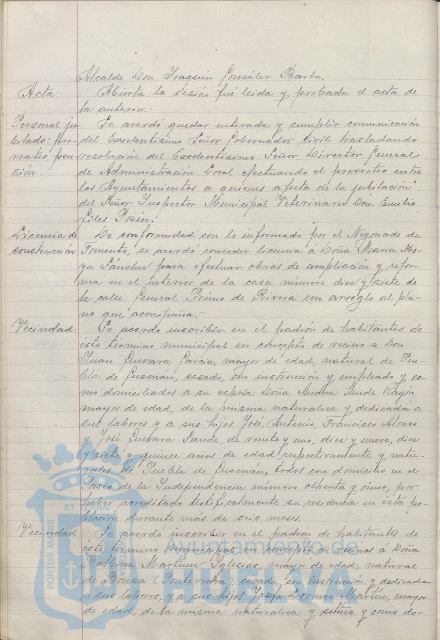 Alcalde Don Joaquín González Barba.
Acta: Abierta la sesión fué leida y probada el acta de
la anterior.
Personal ju- Se acordó quedar enterada y cumplir comunicación
bilado: pro- del Excelentísimo Señor Gobernador Civil trasladando
rrateo pen- resolución del Excelentísimo Señor Director General
sión. de Administración Local efectuando el prorrateo entre
los Ayuntamientos a quienes afecta de la jubilación
del Señor Inspector Municipal Veterinario Don Emilio
Giles
Licencia de De conformidad con lo informado por el Negociado de
construcción Fomento, se acordó conceder licencia á Doña María
Sánchez para efectuar obras de ampliación y refor-
ma en el interior de la casa número diez y siete de
la calle General Primo de Rivera con arreglo al pla-
no que acompaña.
Vecindad Se acordó inscribir en el padrón de habitantes de
este término municipal en concepto de vecino a Don
Juan Guevara García, mayor de edad, natural de Pue-
bla de Guzmán, casado, con instrucción y empleado y co-
mo domiciliados a su esposa Doña
mayor de edad, de la misma naturaleza y dedicada a
sus labores y a sus hijos José, Antonio, Francisco
José Guevara de veinte y uno, diez y nueve, diez
y siete y quince años de edad respectivamente y natu-
rales de Puebla de Guzmán, todos con domicilio en el
Paseo de la Independencia número ochenta y cinco, por
haber acreditado testificalmente su residencia en esta po-
blación durante más de seis meses.
Vecindad Se acordó inscribir en el padrón de habitantes de
este término municipal en concepto de vecinos a Doña
Martínez Iglesias, mayor de edad, natural
de (Pontevedra), casada, con instrucción y dedicada
a sus labores, y a sus hijos Martínez, mayor
de edad, de la misma naturaleza y soltera y como do-
PORTUS MARIS ET
Ayuntamiento de